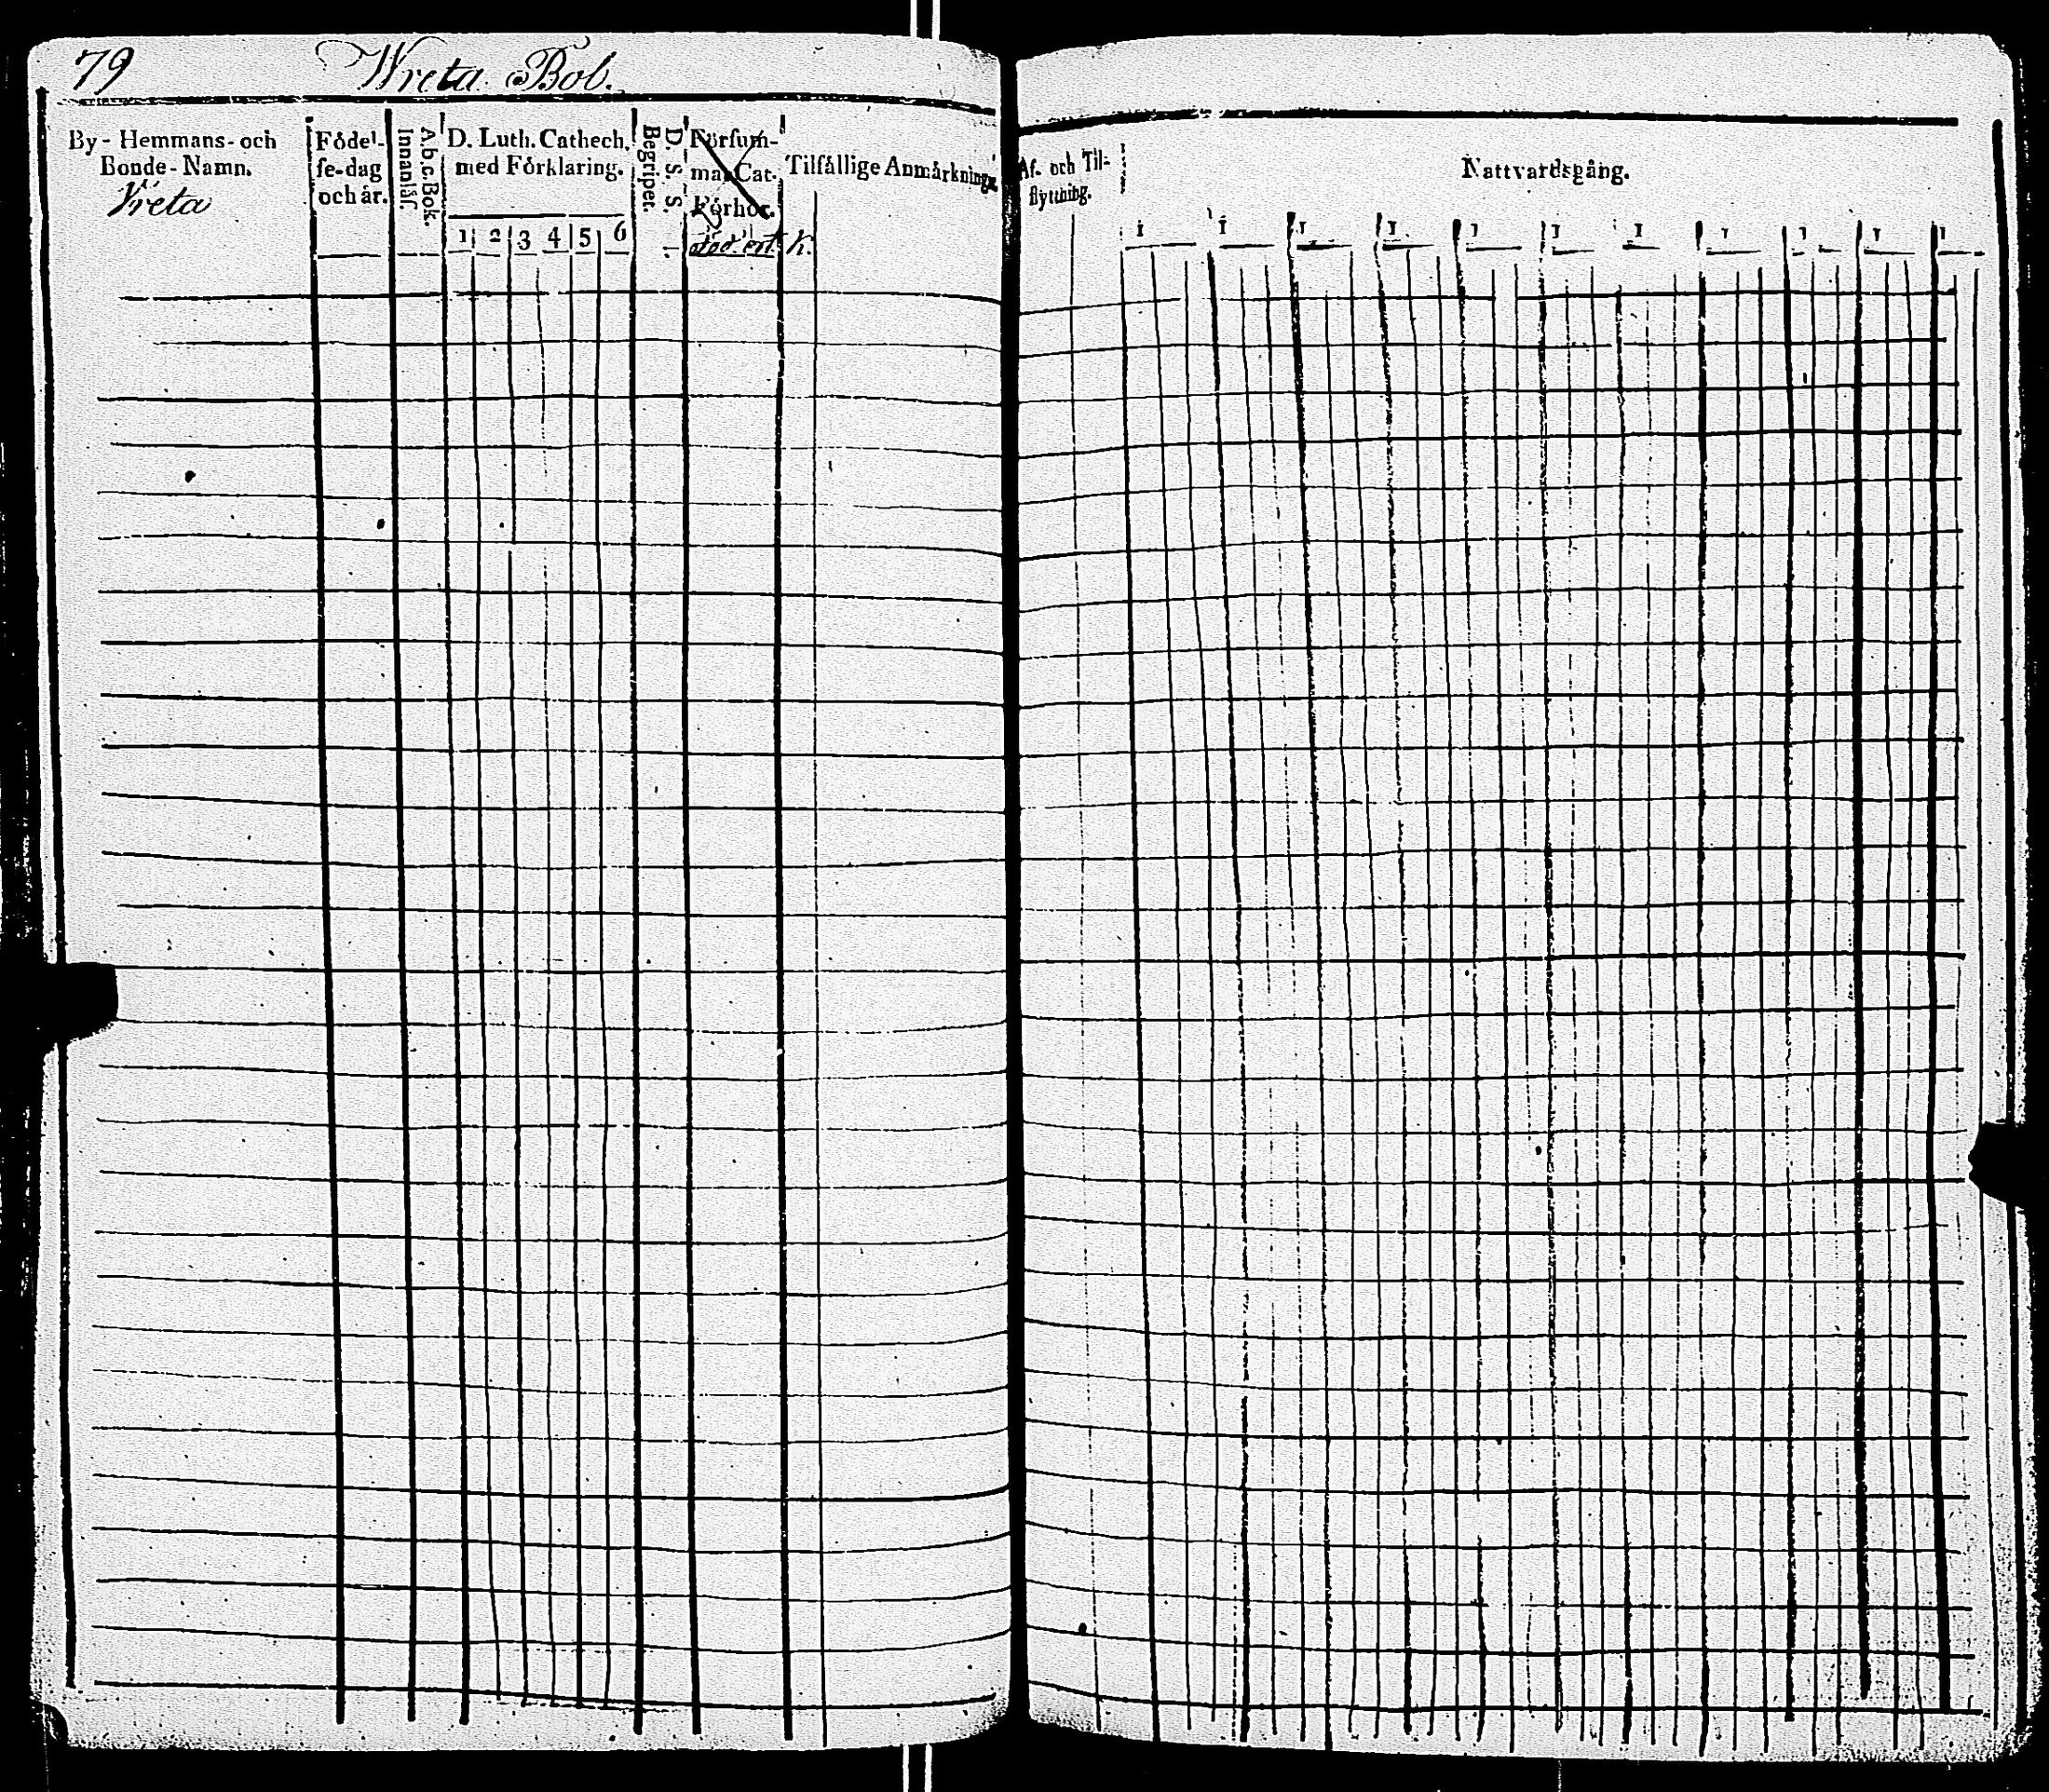 79 Wreta Bol.
By- Hemmans- och
Bonde-Namn.
Vreta
Födel-
se-dag
och år.
A.b.c.Bok.
Innanläs.
D. Luth. Cathech.
med Förklaring.
1 2 3 4 5 6
D. S. S.
Begriper.
Försum-
ma Cat.
Förhör.
K.
Tilfällige Anmärkning
Af- och Til-
flyttning.
Nattvardsgång.
1 1 1 1 1 1 1 1 1 1 1